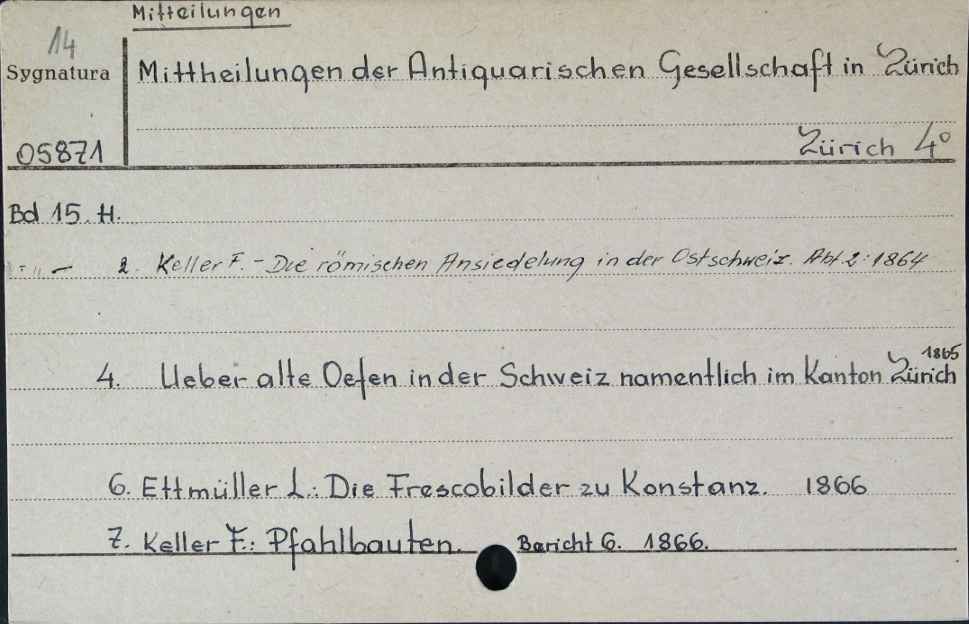 Mitteilungen
14
Sygnatura
Mittheilungen der Antiquarischen Gesellschaft in Zürich
05871
Zürich 4°
Bd 15. H.
-"- 2. Keller F. - Die römischen Ansiedelung in der Ostschweiz. Abt 2: 1864
4. Ueber alte Oefen in der Schweiz namentlich im Kanton Zürich 1865
6. Ettmüller L.: Die Frescobilder zu Konstanz. 1866
7. Keller F.: Pfahlbauten. Baricht 6. 1866.